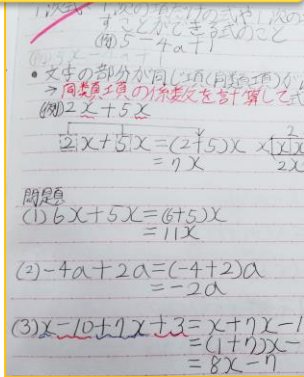 1次式 1次の項だけの式や1次の
すことができる式のこと
(例)5-4a+1
•文字の部分が同じ項(同類項)が
→同類項の係数を計算して式
(例)2x+5x
2x+5x=(2+5)x
=7x
2x
問題
(1)6x+5x=(6+5)x
=11x
(2)-4a+2a=(-4+2)a
=-2a
(3)x-10+7x+3=x+7x-1
=(1+7)x-
=8x-7